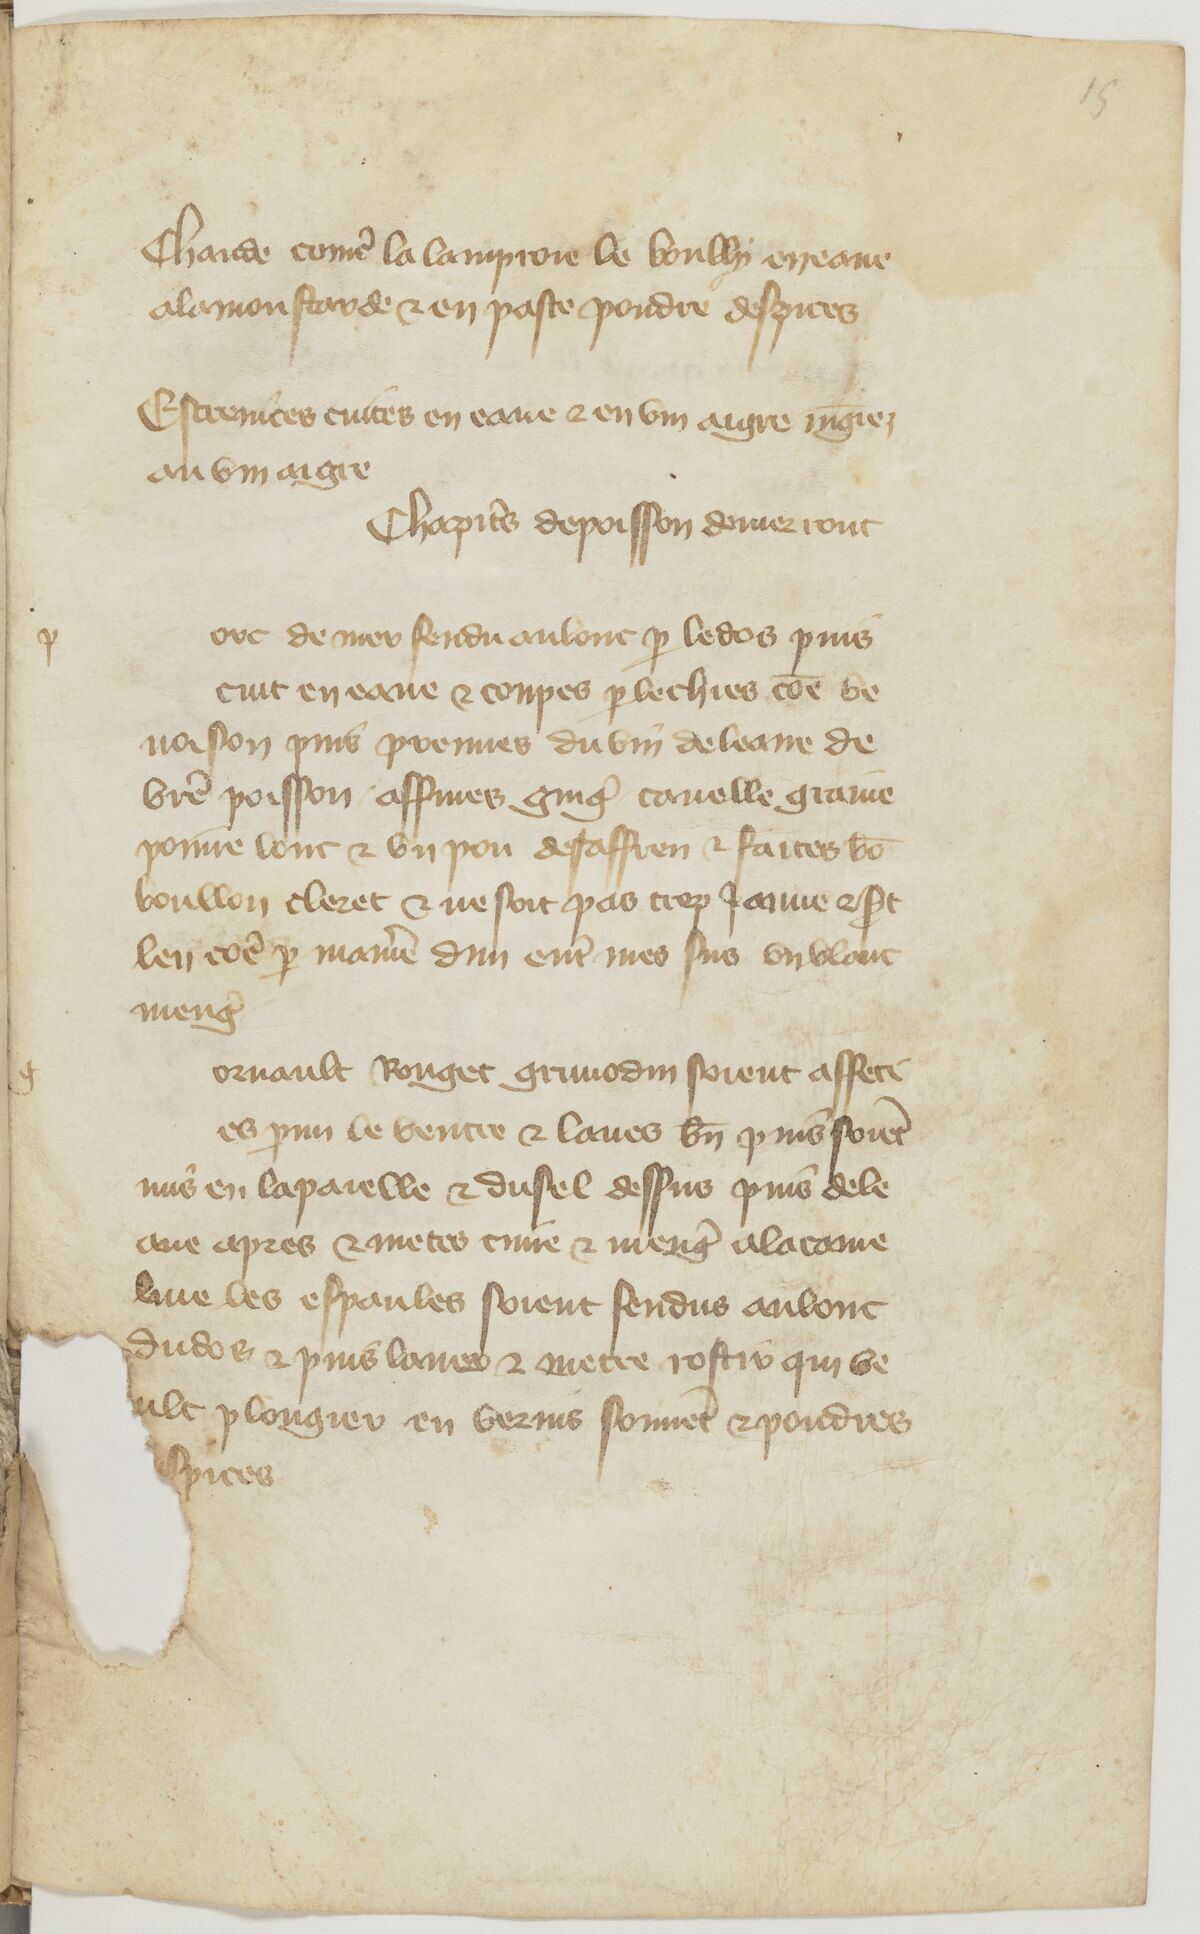 15
Chaude com̄e la lamproie le boully en eaue
a la moustarde & en paste poudre despices
Escrevices cuites en eaue & en vin aigre mēgiez
au vin aigre
Chapitrē de poisson de mer ront
p orc de mer fendu au lonc p le dos puis
cuit en eaue & coupes p lechies cōe ve
noison puis prennes du vin de leaue de
vrē poisson affines gingē canelle graine
poivre lonc & vn pou de saffren & faites bō
boullon cleret & ne soit pas trop Jaune & sert
len cōe p maniē dun entē mes sus vn blanc
mengē
g ornault Rouget grimodin soient affeti
es p mi le ventre & laves bn̄ puis soiēt
mis en la paielle & du sel dessus puis de le
aue apres & metes cuire & mengē a la came
line les espaules soient fendus au lonc
du dos & puis laver & metre rostir qui ve
ult plongier en verjus souvēt & poudres
spices